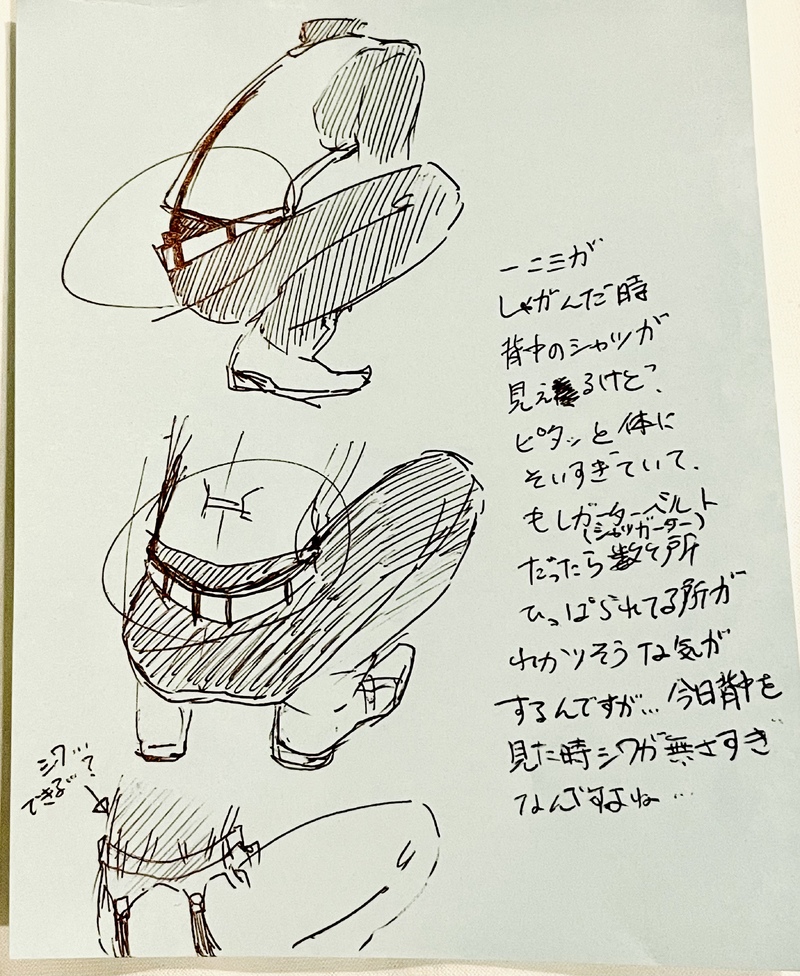 一ニ三が
しゃがんだ時
背中のシャツが
見えるけど、
ピタッと体に
そいすぎていて、
もしガーターベルト
(シャツガーター)
だったら数ヶ所
ひっぱられてる所が
わかりそうな気が
するんですが… 今日背中を
見た時シワが無さすぎ
なんですよね…
シワ…?
できる?